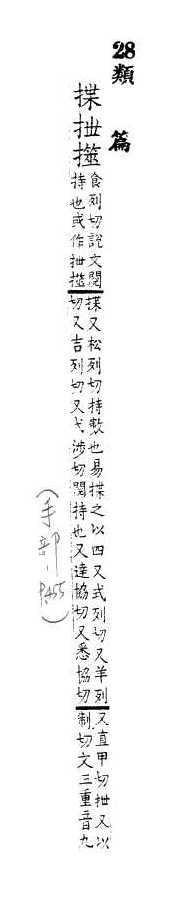 28類 篇
揲抴
食列切說文閱
持也或作抴
揲又松列切持數也易揲之以四又式列切又羊列
切又吉列切又弋涉切閱持也又達協切又悉協切
又直甲切抴又以
制切文三重音九
(手部-P455)